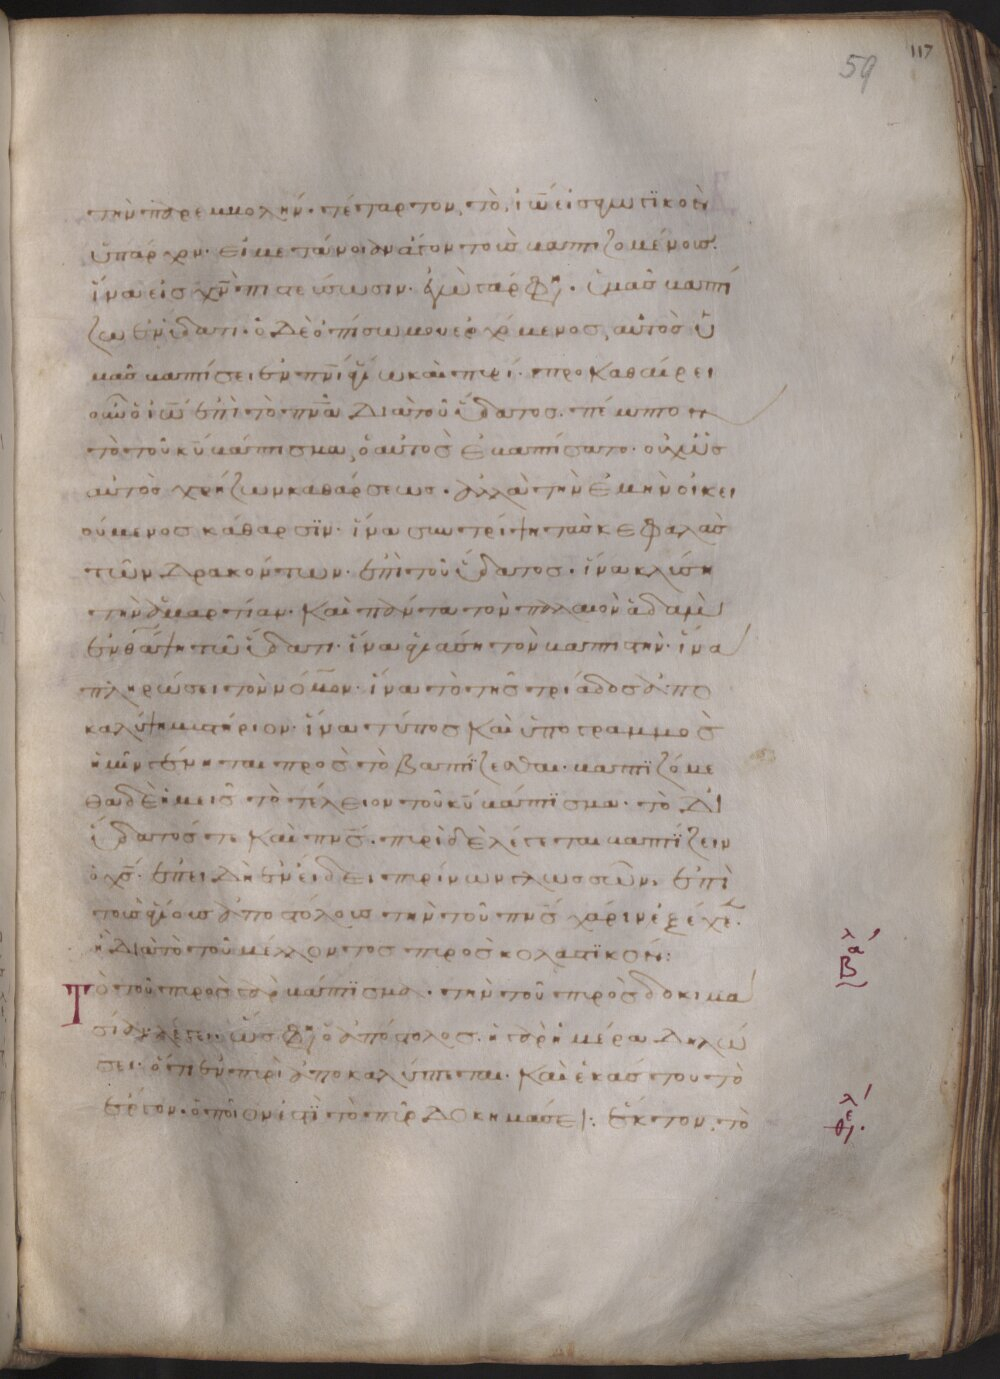 τὴν παρεμβολήν· τέταρτον, τὸ, ἰω̅ εἰσαγωγικὸν
ὑπάρχον· εἰ μετάνοιαν ἄγον τοὺς βαπτιζομένους·
ἵνα εἰς χ̅ν̅ πιστεύσωσιν· ἐγὼ γάρ φη· ὑμᾶς βαπτί
ζω ἐν ὕδατι· ὁ δὲ ὀπίσω μου ἐρχόμενος, αὐτὸς ὑ
μᾶς βαπτίσει ἐν πν̅ι ἁγίω καὶ πυρί· προκαθαίρει
οὖν ὁ ἰω̅ ἐπὶ τὸ πν̅α διὰ τοῦ ὕδατος· πέμπτον
τὸ τοῦ κ̅υ̅ βάπτισμα, ὃ αὐτὸς ἐβαπτίσατο· οὐχ ὡς
αὐτὸς χρήζων καθάρσεως· ἀλλὰ τὴν ἐμὴν οἰκει
ούμενος κάθαρσϊν· ἵνα συντρίψη τὰς κεφαλὰς
τῶν δρακόντων· ἐπὶ τοῦ ὕδατος· ἵνα κλύση
τὴν ἁμαρτίαν· καὶ πάντα τὸν παλαιὸν ἀδὰμ
ἐνθάψη τῶ ὕδατι· ἵνα ἁγιάση τὸν βαπτιστὴν· ἵνα
πληρώσει τὸν νόμον· ἵνα τὸ τῆς τριάδος ἀπο
καλύψη μιστήριον· ἵνα τύπος καὶ ὑπογραμμὸς
ἡμῖν γένηται πρὸς τὸ βαπτΐζεσθαι· βαπτϊζόμε
θα δὲ ἡμεῖς τὸ τέλειον τοῦ κ̅υ̅ βάπτϊσμα· τὸ δι
ὕδατός τε καὶ πν̅ς· πυρὶ δὲ λέγεται βαπτΐζειν
ὁ χ̅ς· ἐπειδὴ ἐν εἴδει πυρίνων γλωσσῶν, ἐπὶ
τοὺς ἁγίους ἀποστόλους τὴν τοῦ πν̅ς χάριν ἐξέχεε·
ἢ διὰ τὸ τοῦ μέλλοντος πυρὸς κολαστϊκόν:
Τὸ τοῦ πυρὸς γὰρ βάπτϊσμα· τὴν τοῦ πυρὸς δοκιμα
σίαν λέγει· ὥς φη ὁ ἀπόστολος· ἡ γὰρ ἡμέρα δηλώ
σει· ὅτι ἐν πυρὶ ἀποκαλύπτεται· καὶ ἑκάστου τὸ
ἔργον· ὁποῖον ἐστϊ τὸ πῦρ δοκημάσει: ἕκτον, τὸ